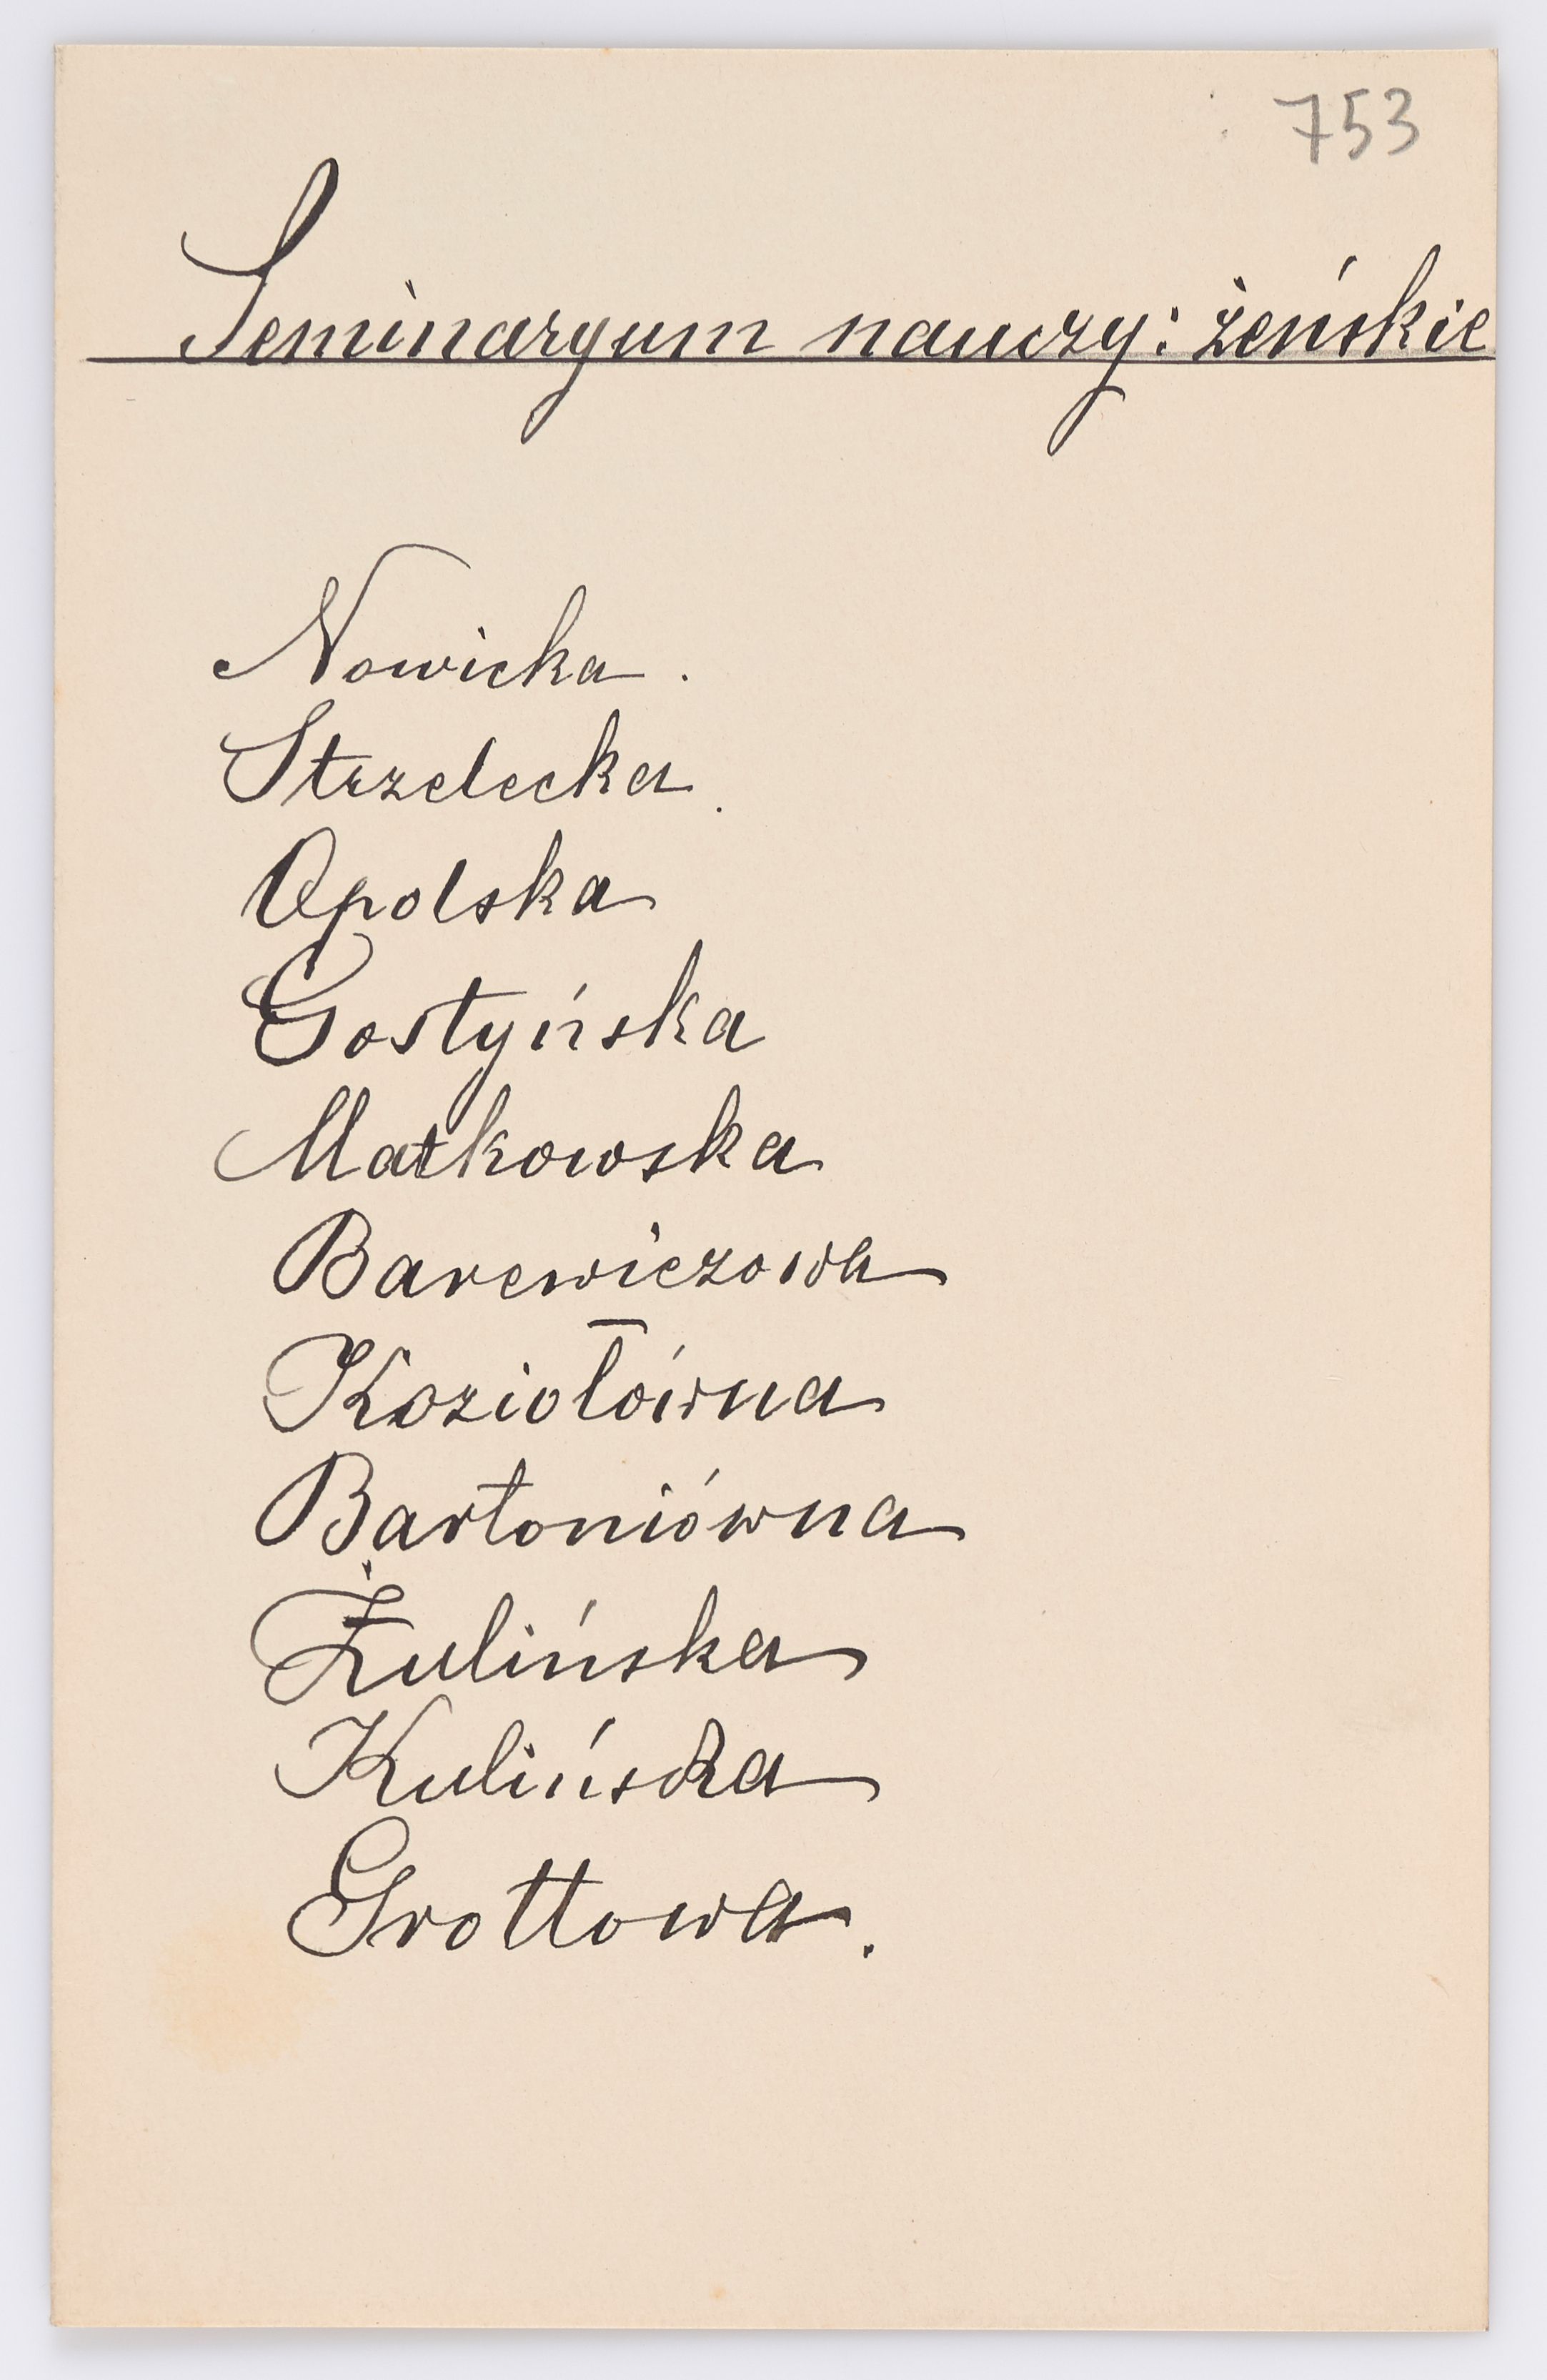 753
Seminaryum nauczy: żeńskie
Nowicka.
Strzelecka.
Opolska
Gostyńska
Matkowska
Barewiczowa
Koziołówna
Bartoniówna
Żulińska
Kulińska
Grottowa.